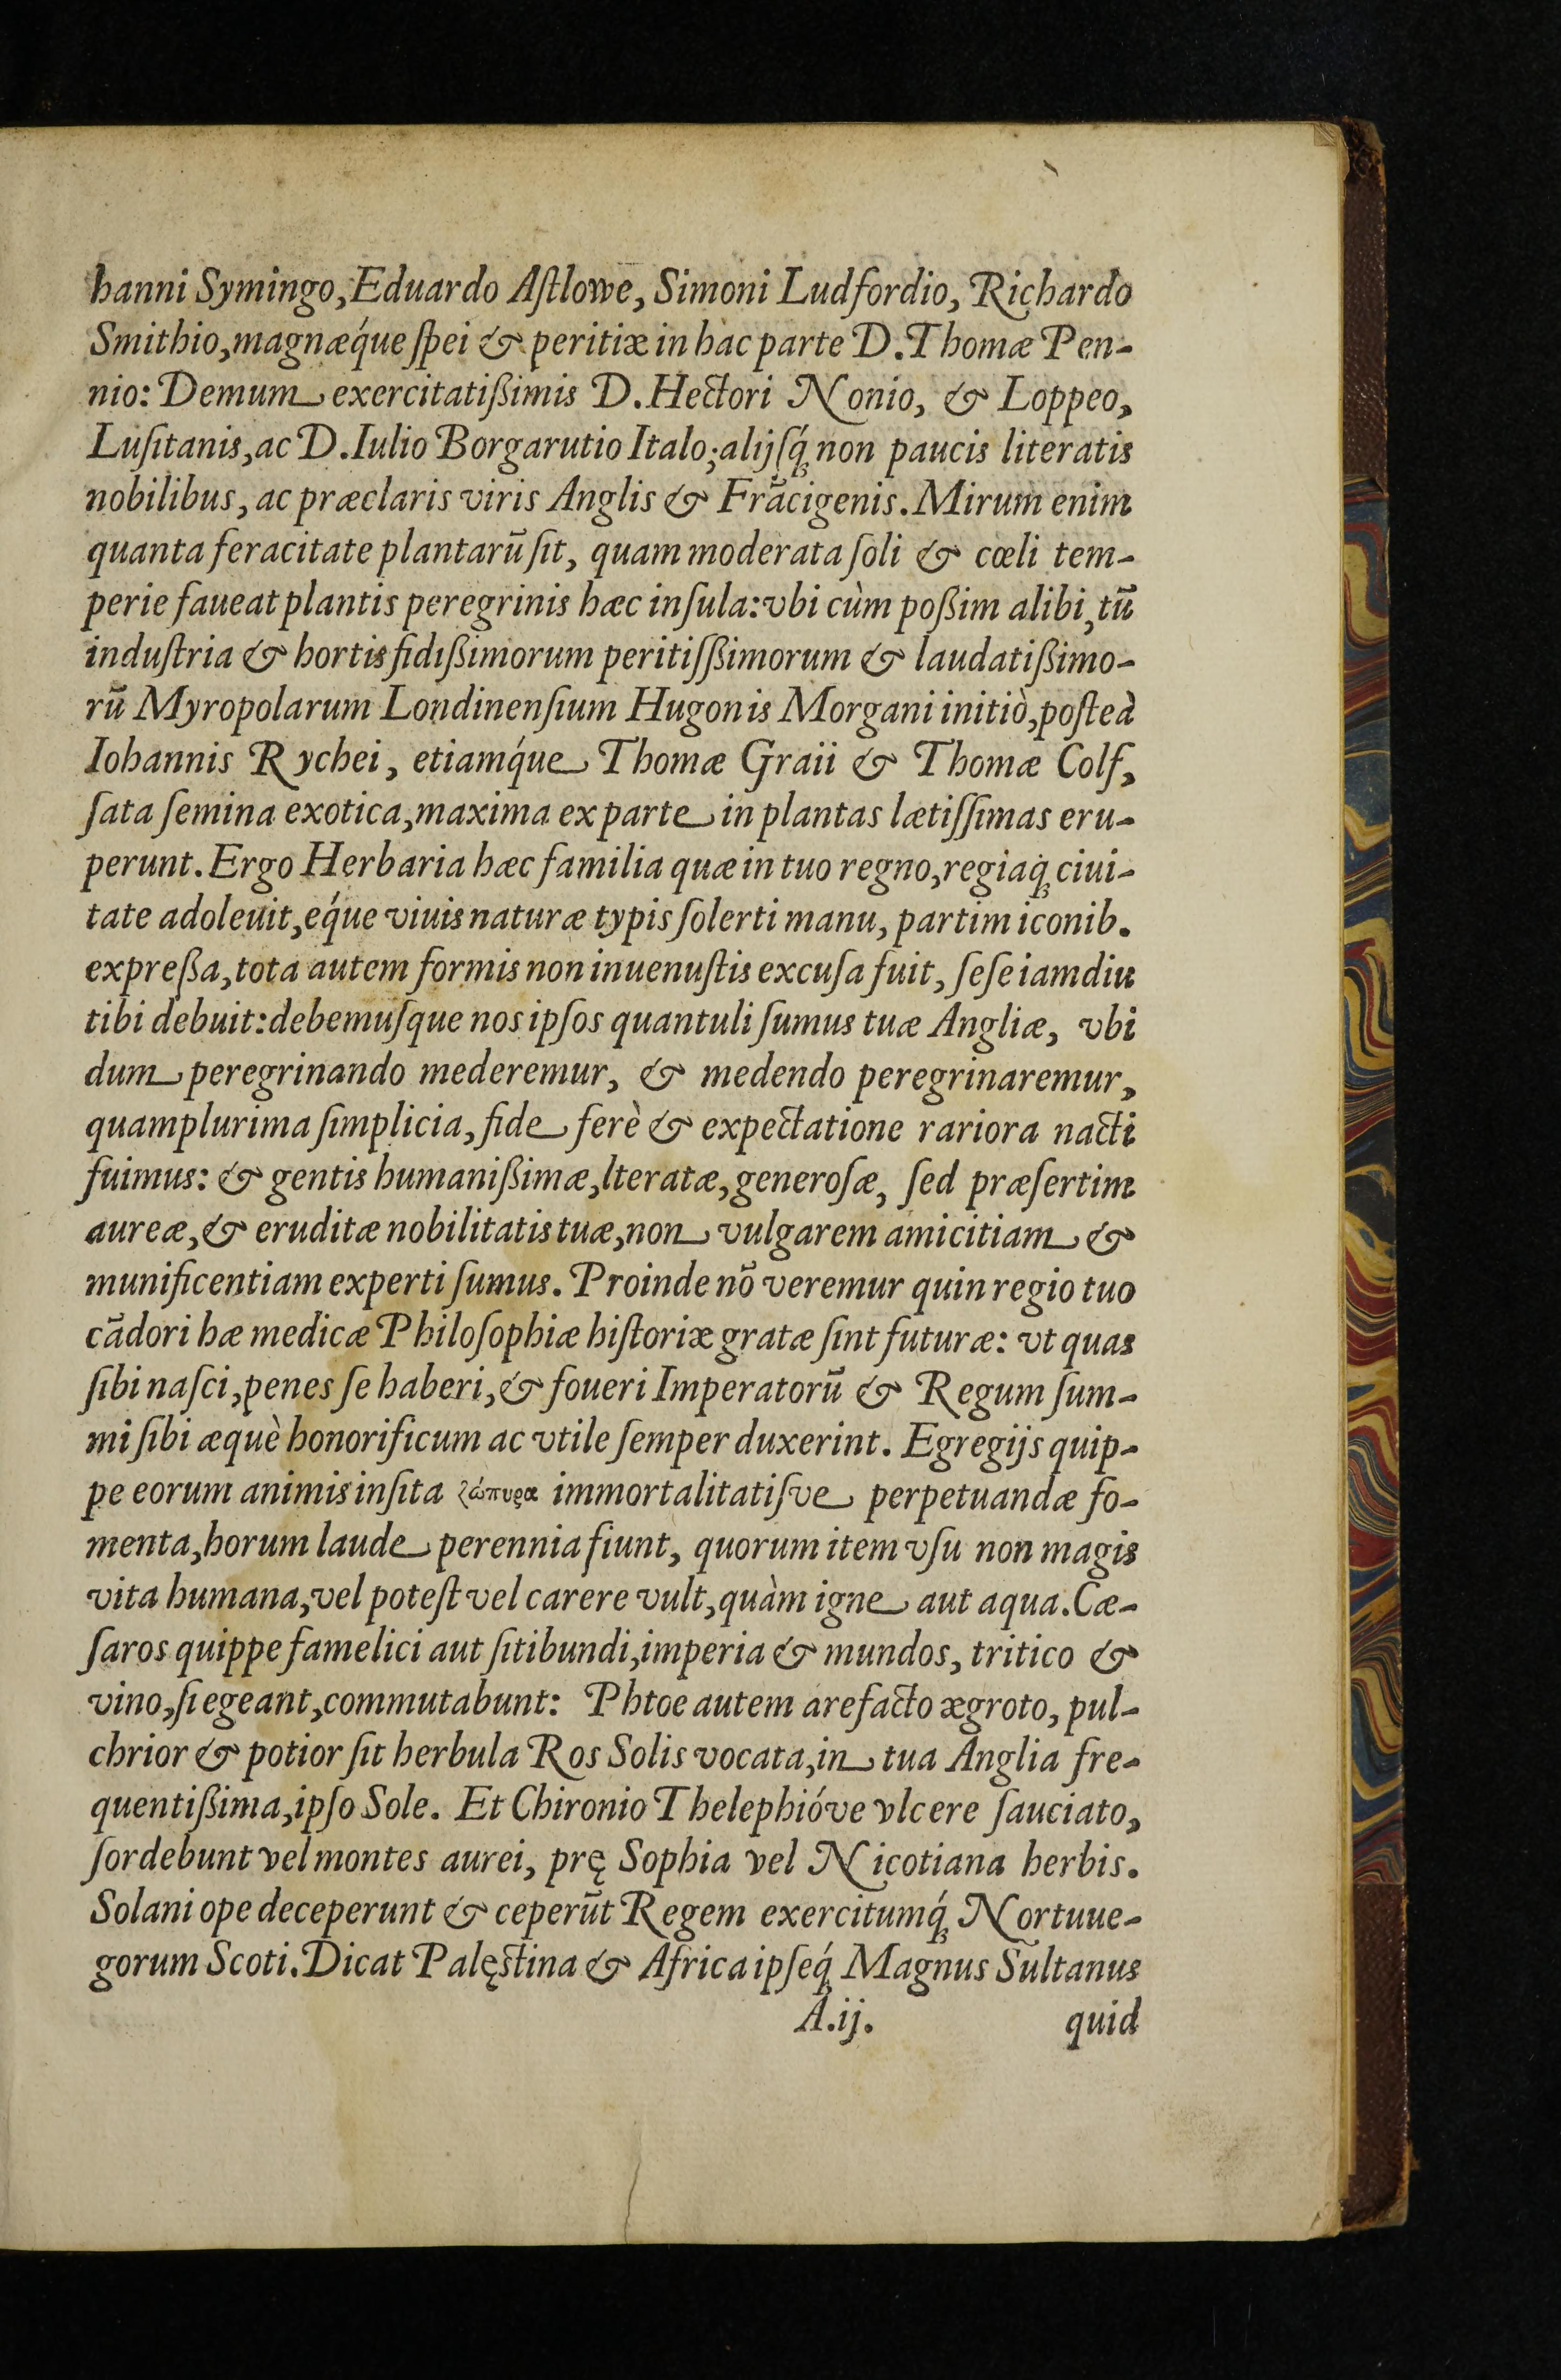 hanni Symingo, Eduardo Aſtlowe, Simoni Ludfordio, Richardo
Smithio, magnæq́ue ſpei & peritiæ in hac parte D. Thomæ Pen-
nio: Demum exercitatißimis D. Hectori Nonio, & Loppeo,
Luſitanis, ac D. Iulio Borgarutio Italo; alijſq́ꝫ non paucis literatis
nobilibus, ac præclaris viris Anglis & Frãcigenis. Mirum enim
quanta feracitate plantarũ ſit, quam moderata ſoli & cœli tem-
perie faueat plantis peregrinis hæc inſula: vbi cùm poßim alibi, tũ
induſtria & hortis fidißimorum peritiſßimorum & laudatißimo-
rũ Myropolarum Londinenſium Hugonis Morgani initiò, poſteà
Iohannis Rychei, etiamq́ue Thomæ Graii & Thomæ Colf,
ſata ſemina exotica, maxima ex parte in plantas lætiſſimas eru-
perunt. Ergo Herbaria hæc familia quæ in tuo regno, regiaqꝫ ciui-
tate adoleuit, eq́ue viuis naturæ typis ſolerti manu, partim iconib.
expreßa, tota autem formis non inuenuſtis excuſa fuit, ſeſe iamdiu
tibi debuit: debemuſque nos ipſos quantuli ſumus tuæ Angliæ, vbi
dum peregrinando mederemur, & medendo peregrinaremur,
quamplurima ſimplicia, fide ferè & expectatione rariora nacti
fuimus: & gentis humanißimæ, lteratæ, generoſæ, ſed præſertim
aureæ, & eruditæ nobilitatis tuæ, non vulgarem amicitiam &
munificentiam experti ſumus. Proinde nõ veremur quin regio tuo
cãdori hæ medicæ Philoſophiæ hiſtoriæ gratæ ſint futuræ: vt quas
ſibi naſci, penes ſe haberi, & foueri Imperatorũ & Regum ſum-
mi ſibi æquè honorificum ac vtile ſemper duxerint. Egregijs quip-
pe eorum animis inſita ζώπυρα immortalitatiſve perpetuandæ fo-
menta, horum laude perennia fiunt, quorum item vſu non magis
vita humana, vel poteſt vel carere vult, quàm igne aut aqua. Cæ-
ſaros quippe famelici aut ſitibundi, imperia & mundos, tritico &
vino, ſi egeant, commutabunt: Phtoe autem arefacto ægroto, pul-
chrior & potior ſit herbula Ros Solis vocata, in tua Anglia fre-
quentißima, ipſo Sole. Et Chironio Thelephióve vlcere ſauciato,
ſordebunt vel montes aurei, prę Sophia vel Nicotiana herbis.
Solani ope deceperunt & ceperũt Regem exercitumq́ꝫ Nortuue-
gorum Scoti. Dicat Palęſtina & Africa ipſeq́ꝫ Magnus Sultanus
A.ij. quid